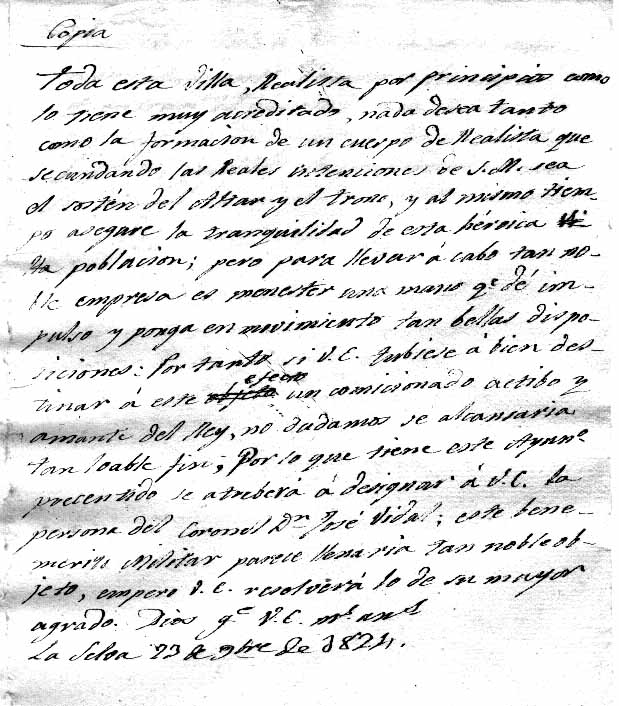 Copia
Toda esta Villa, Realista por principios como
lo tiene muy acreditado, nada desea tanto
como la formacion de un cuerpo de Realista que
secundando las Reales intenciones de S.M. sea
el sostén del Altar y el trono, y al mismo tiem-
po asegure la tranquilidad de esta héroica
ta poblacion; pero para llevar á cabo tan no-
ble empresa es menester una mano q.e dé im-
pulso y ponga en movimiento tan bellas dispo-
siciones: Por tanto si V.E. tubiese á bien des-
tinar á este objeto efecto un comicionado actibo y
amante del Rey, no dudamos se alcansaria
tan loable fin; Por lo que tiene este Ayun.o
precentido se atreberá á designar á V.E. la
persona del Coronel D.n José Vidal; este bene-
merito Militar parece llenaria tan noble ob-
jeto, empero V.E. resolverá lo de su mayor
agrado. Dios g.e V.E. m.s an.s
La Selva 23 de 9bre de 1824.